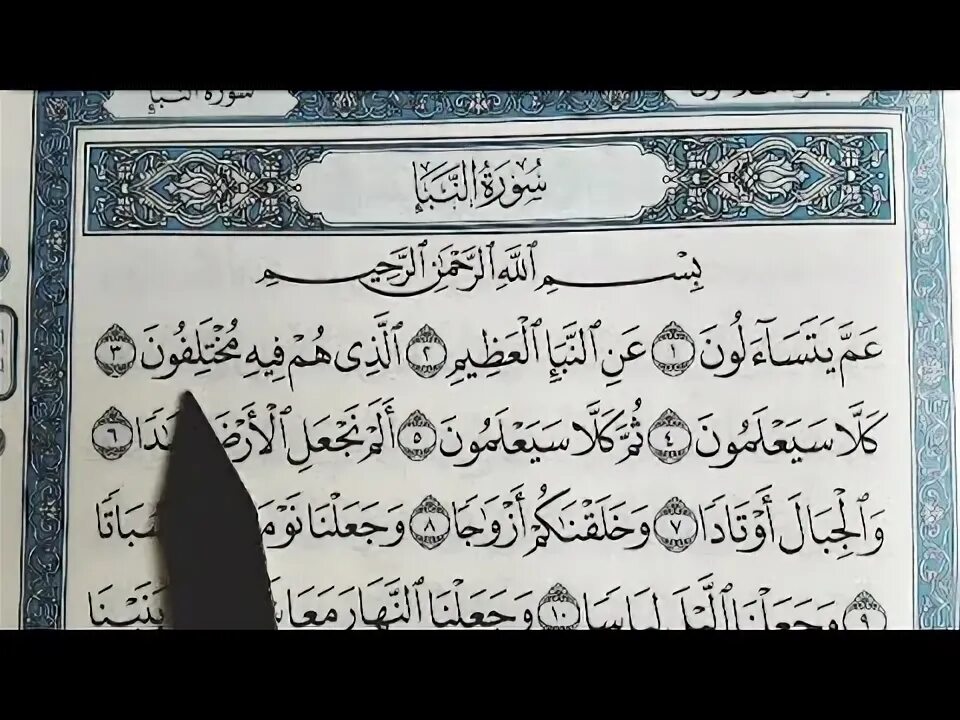 سورة النبإ
سُورَةُ النَّبَإِ
بِسْمِ ٱللَّهِ ٱلرَّحْمَٰنِ ٱلرَّحِيمِ
عَمَّ يَتَسَآءَلُونَ ١ عَنِ ٱلنَّبَإِ ٱلْعَظِيمِ ٢ ٱلَّذِى هُمْ فِيهِ مُخْتَلِفُونَ ٣
كَلَّا سَيَعْلَمُونَ ٤ ثُمَّ كَلَّا سَيَعْلَمُونَ ٥ أَلَمْ نَجْعَلِ ٱلْأَرْضَ ٦
وَٱلْجِبَالَ أَوْتَادًا ٧ وَخَلَقْنَٰكُمْ أَزْوَٰجًا ٨ وَجَعَلْنَا
٩ وَجَعَلْنَا ٱلَّيْلَ لِبَاسًا ١٠ وَجَعَلْنَا ٱلنَّهَارَ